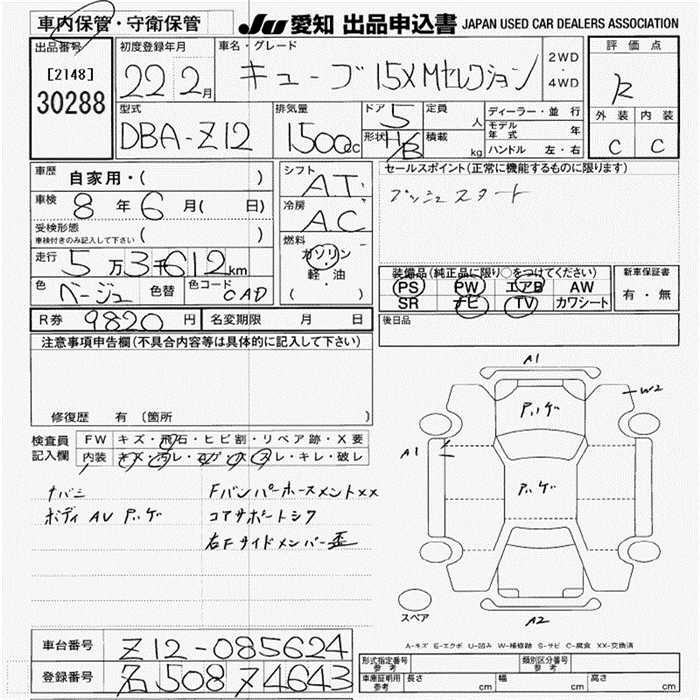 車内保管・守衛保管
JU 愛知 出品申込書 JAPAN USED CAR DEALERS ASSOCIATION
出品番号
[2148]
30288
初度登録年月
22 2月
車名・グレード
キューブ 15X Mセレクション
2WD
・
4WD
評価点
R
外装 内装
C C
型式
DBA-Z12
排気量
1500cc
ドア 5
形状 H/B
定員 人
積載 kg
ディーラー・並行
モデル年式 年
ハンドル 左・右
車歴 自家用・( )
車検 8年6月( 日)
受検形態
車検付きのみ記入して下さい ( )
走行 5万3千612km
色 ベージュ 色替 色コード CAD
R券 9820円 名変期限 月 日
シフト
AT
冷房
AC
燃料
ガソリン
・
軽・油
( )
セールスポイント(正常に機能するものに限ります)
プッシュスタート
装備品(純正品に限り○をつけてください)
PS PW エアB AW
SR ナビ TV カワシート
新車保証書
有・無
後日品
注意事項申告欄(不具合内容等は具体的に記入して下さい)
修復歴 有 〔箇所 〕
検査員
記入欄
FW キズ・飛石・ヒビ割・リペア跡・X要
内装 キズ・汚レ・コゲ・スレ・キレ・破レ
ナバミ
ボディ AU アバゲ
Fバンパーホースメントxx
コアサポートシワ
右Fサイドメンバー歪
A1
W2
A1
A2
スペア
A-キズ E-エクボ U-凹み W-補修跡 S-サビ C-腐食 XX-交換済
車台番号 Z12-085624
登録番号 名508 ヌ4643
形式指定番号
参考
類別区分番号
参考
車庫証明用
参考
長さ cm 幅 cm 高さ cm